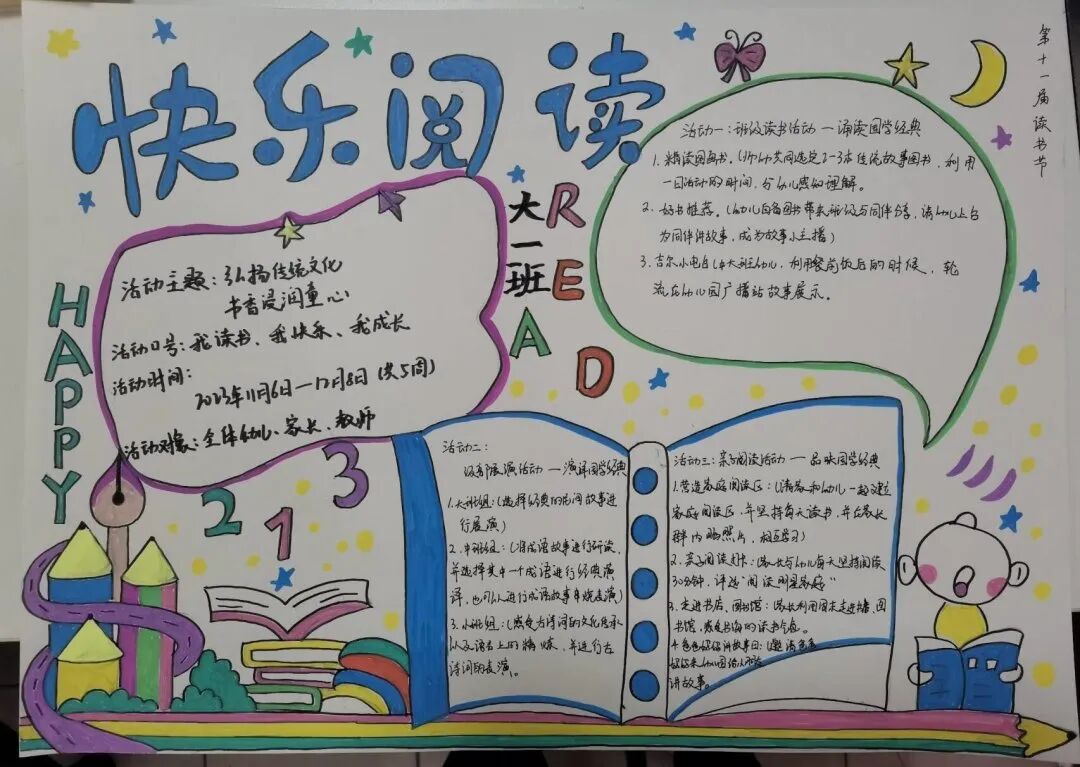 快乐阅读
第十一届读书节
HAPPY
READ
大一班
213
活动主题：弘扬传统文化
书香浸润童心
活动口号：我读书、我快乐、我成长
活动时间：
2023年11月6日—12月8日（共5周）
活动对象：全体幼儿、家长、教师
活动一：班级读书活动—诵读国学经典
1.精读图画书。（师幼共同选定2-3本传统故事图书，利用
一日活动的时间，分幼儿感知理解。
2.好书推荐。（幼儿自备图书带来班级与同伴分享，请幼儿上台
为同伴讲故事，成为故事小主播）
3.吉尔小电台（中大班幼儿，利用餐前饭后的时候，轮
流在幼儿园广播站故事展示。
活动二：
级部展演活动—演译国学经典
1.大班组：（选择经典的民间故事进
行展演）
2.中班组：（将成语故事进行研读，
并选择其中一个成语进行经典演
译，也可以进行成语故事串烧表演）
3.小班组：（感受古诗词的文化传承
以及语言上的精炼，并进行古
诗词的表演。
活动三：亲子阅读活动—品味国学经典
1.营造家庭阅读区：（请家长和幼儿一起建立
家庭阅读区，并坚持每天读书，并在家长
群内晒照片，相互学习）
2.亲子阅读打卡：（家长与幼儿每天坚持阅读
30分钟，评选"阅读明星家庭"
3.走进书店、图书馆：（家长利用周末走进书店、图
书馆，感受书海的读书气氛。
4.爸爸妈妈讲故事日：（邀请爸爸
妈妈来幼儿园给小朋友
讲故事。